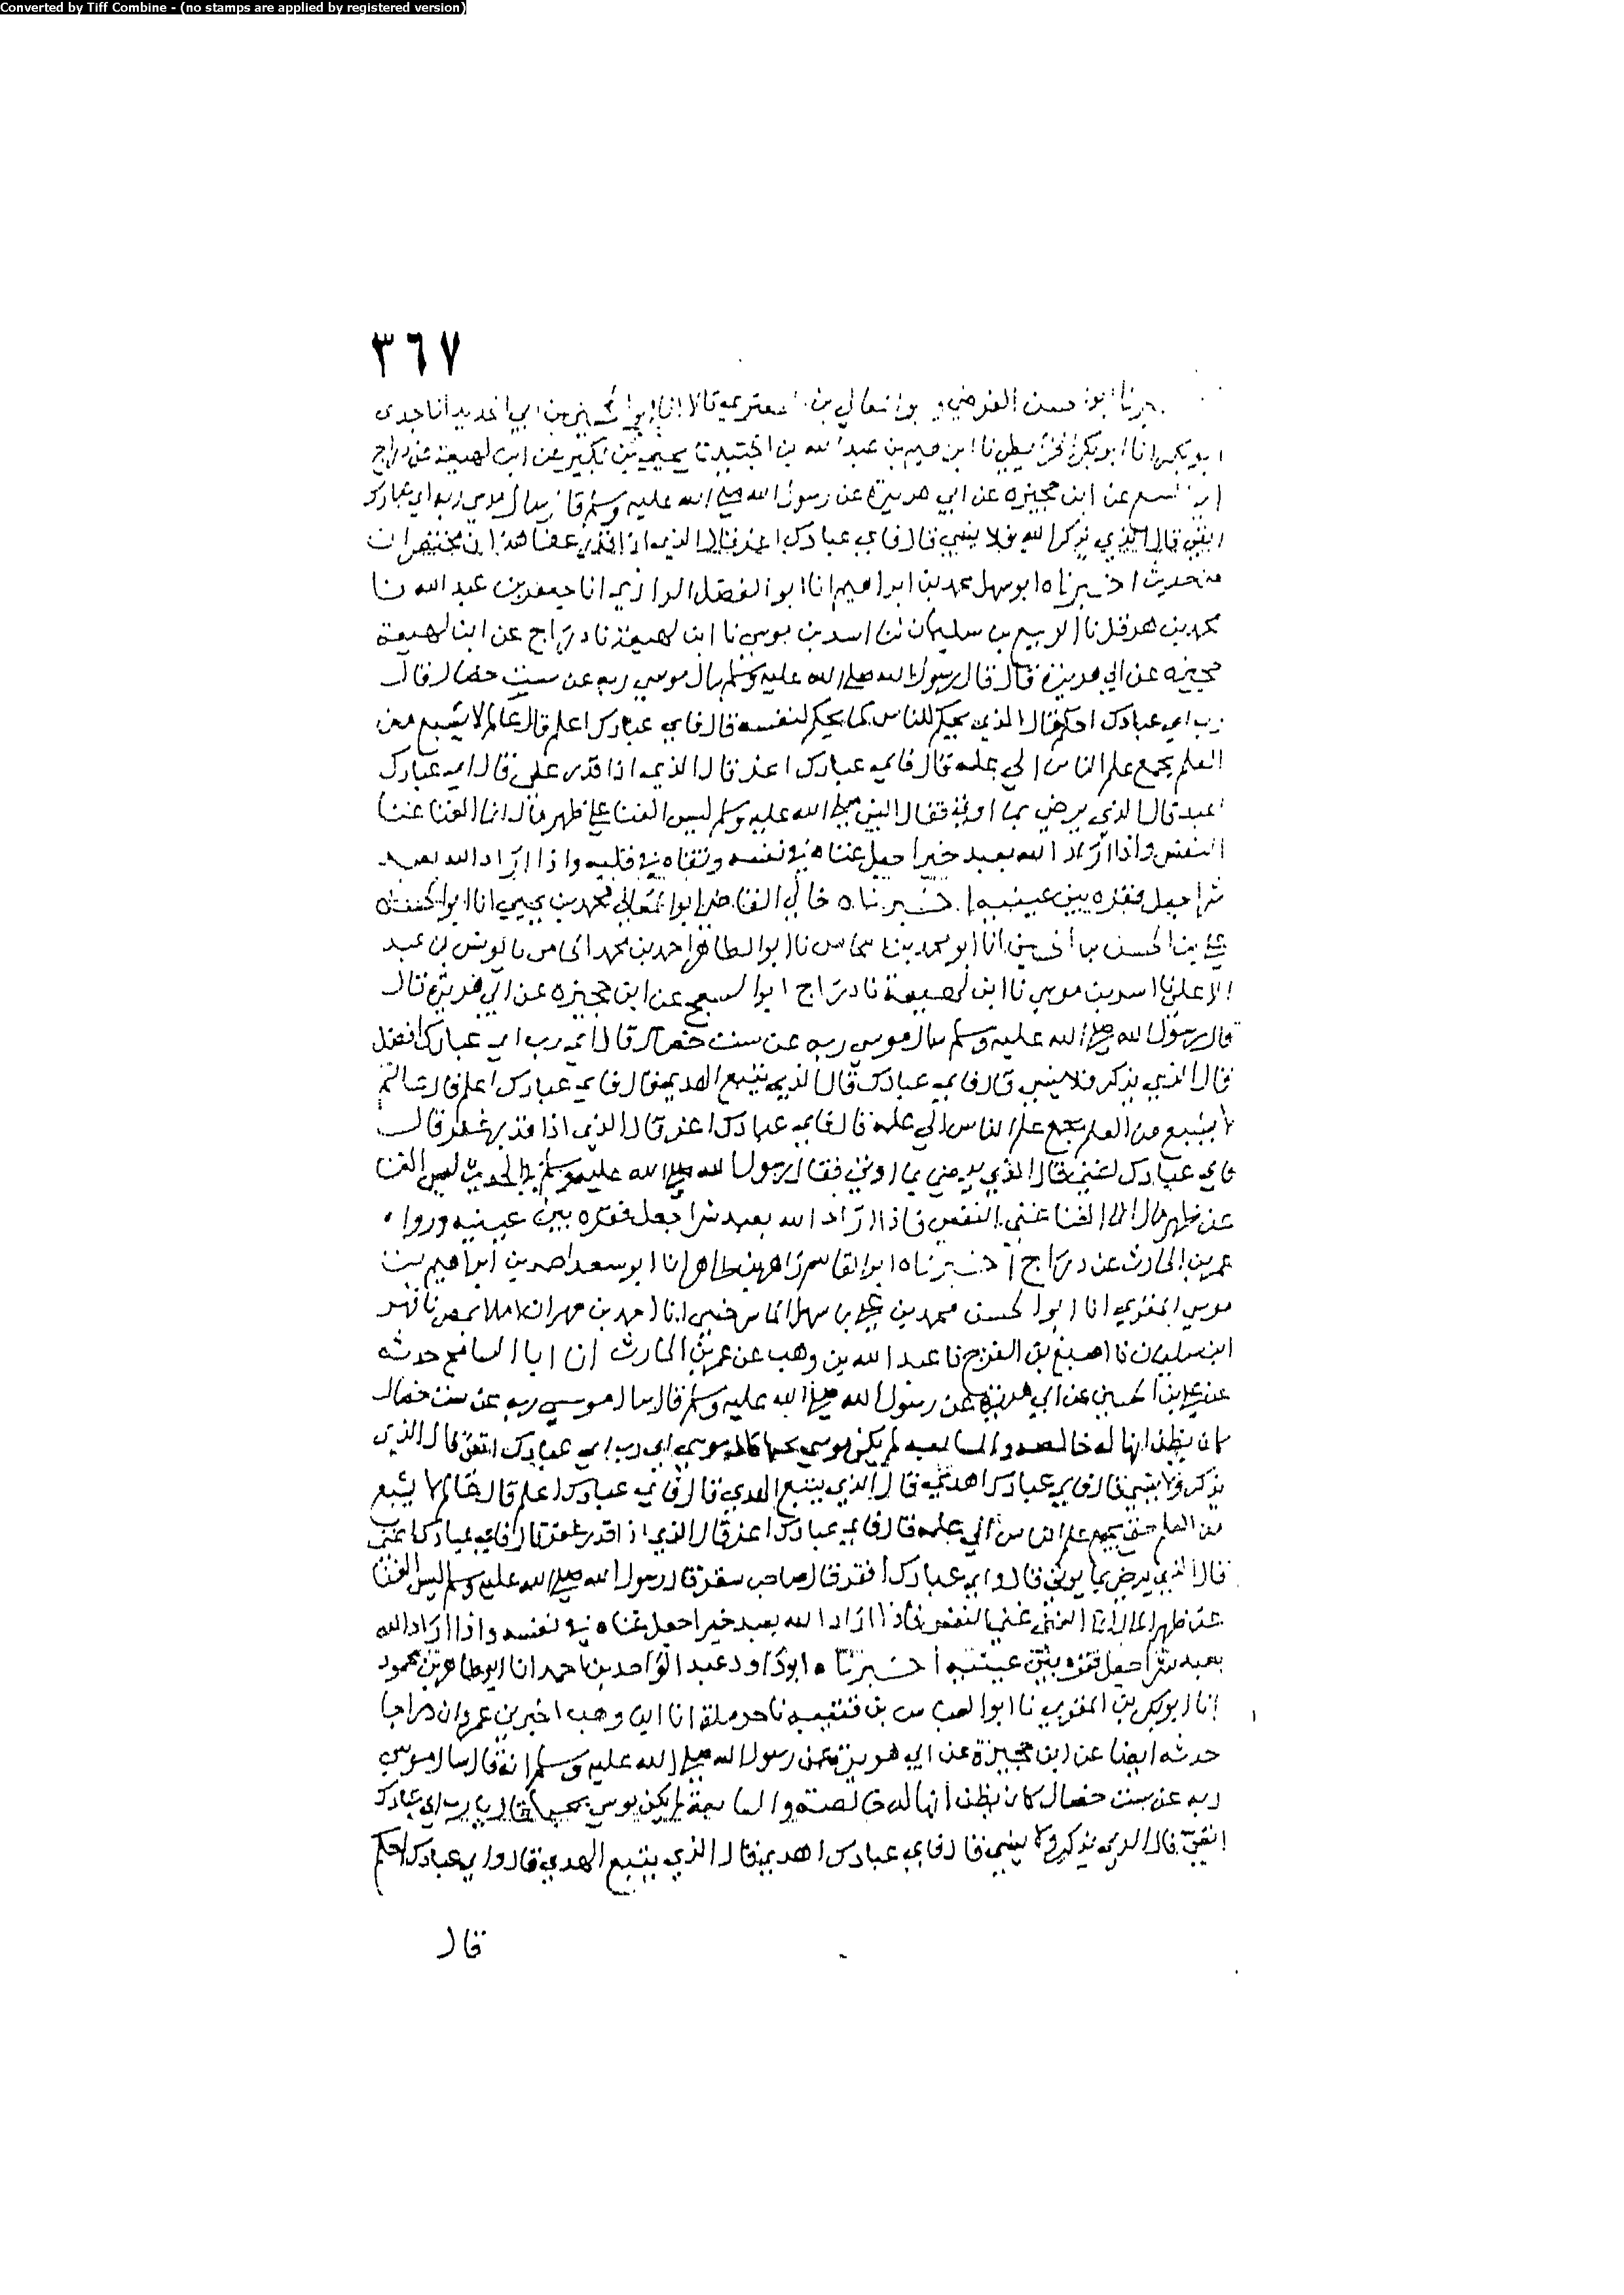 Converted by Tiff Combine - (no stamps are applied by registered version)
٣٦٧
الفرضي وابو المعالي بن قالا انا ابو بن ابي الحديد انا جدي
ابو بكر انا ابو بكر نا ابرهيم بن عبد الله بن الجنيد نا يحيى بن بكير عن ابن لهيعة عن دراج
عن ابن حجيرة عن ابي هريرة عن رسول الله صلى الله عليه وسلم قال سال موسى ربه اي عبادك
اتقى قال الذي يذكر الله فلا ينسى قال فاي عبادك اعز قال الذي اذا قدر عفا هذا مختصر ان
من حديث اخبرناه ابو سهل محمد بن ابراهيم انا ابو الفضل الرازي انا جعفر بن عبد الله نا
محمد بن هرون نا الربيع بن سليمان نا اسد بن موسى نا ابن لهيعة نا دراج عن ابن لهيعة
حجيرة عن ابي هريرة قال قال رسول الله صلى الله عليه وسلم سال موسى ربه عن ست خصال فقال
رب اي عبادك احكم قال الذي يحكم للناس كما يحكم لنفسه قال فاي عبادك اعلم قال عالم لا يشبع من
العلم يجمع علم الناس الى علمه قال فاي عبادك اعز قال الذي اذا قدر قال اي عبادك
اعبد قال الذي يرضى بما اوتي فقال النبي صلى الله عليه وسلم ليس الغنا على ظهر مال انما الغنا غنا
النفس واذا اراد الله بعبد خيرا جعل غناه في نفسه وتقاه في قلبه واذا اراد الله بعبد
شرا جعل فقره بين عينيه اخبرناه خالي القاضي ابو المعالي محمد بن يحيى انا ابو الحسن
علي بن الحسن بن الحسين انا ابو محمد بن نا ابو الطاهر احمد بن محمد نا يونس بن عبد
الاعلى نا اسد بن موسى نا ابن لهيعة نا دراج ابو السمح عن ابن حجيرة عن ابي هريرة قال
قال رسول الله صلى الله عليه وسلم سال موسى ربه عن ست خصال قال اي رب اي عبادك افضل
قال الذي يذكر فلا ينسى قال فاي عبادك قال الذي يتبع الهدى قال فاي عبادك اعلم قال عالم
لا يشبع من العلم يجمع علم الناس الى علمه قال فاي عبادك اعز قال الذي اذا قدر غفر قال
فاي عبادك اغنى قال الذي يرضى بما اوتي فقال رسول الله صلى الله عليه وسلم في الحديث ليس الغنا
عن ظهر مال انما الغنا غنى النفس فاذا اراد الله بعبد شرا جعل فقره بين عينيه وروا ه
عمر بن الحارث عن دراج اخبرناه ابو القاسم زاهر بن طاهر انا ابو سعد احمد بن ابراهيم بن
موسى المقري انا ابو الحسن محمد بن علي بن سهل انا احمد بن مهران املا بمصر نا فهد
ابن سليمان نا اصبغ بن الفرج نا عبد الله بن وهب عن عمر بن الحارث ان ابا السامح حدثه
عن علي بن الحسين عن ابي هريرة عن رسول الله صلى الله عليه وسلم قال سال موسى ربه عن ست خصال
كان يظن انها له خالصه والسابعه لم يكن موسى يحبها قال موسى اي رب اي عبادك اتقى قال الذي
يذكر ولا ينسى قال فاي عبادك اهدى قال الذي يتبع الهدى قال فاي عبادك اعلم قال عالم لا يشبع
من العلم حتى يجمع علم الناس الى علمه قال فاي عبادك اعز قال الذي اذا قدر غفر قال فاي عبادك اغنى
قال الذي يرضى بما يوتى قال واي عبادك افقر قال صاحب سفر قال رسول الله صلى الله عليه وسلم ليس الغنا
عن ظهر المال انما الغنى غنى النفس فاذا اراد الله بعبد خيرا جعل غناه في نفسه واذا اراد الله
بعبد شرا جعل فقره بين عينيه اخبرناه ابو داود عبد الواحد بن احمد انا ابو طاهر بن محمود
انا ابو بكر بن المقري نا ابو العباس بن قتيبه نا حرملة انا ابن وهب اخبرني عمر وان دراجا
حدثه ايضا عن ابن حجيرة عن ابي هريرة عن رسول الله صلى الله عليه وسلم انه قال سال موسى
ربه عن ست خصال كان يظن انها له خالصة والسابعة لم يكن موسى يحبها قال يا رب اي عبادك
اتقى قال الذي يذكر ولا ينسى قال فاي عبادك اهدى قال الذي يتبع الهدى قال واي عبادك احكم
قال